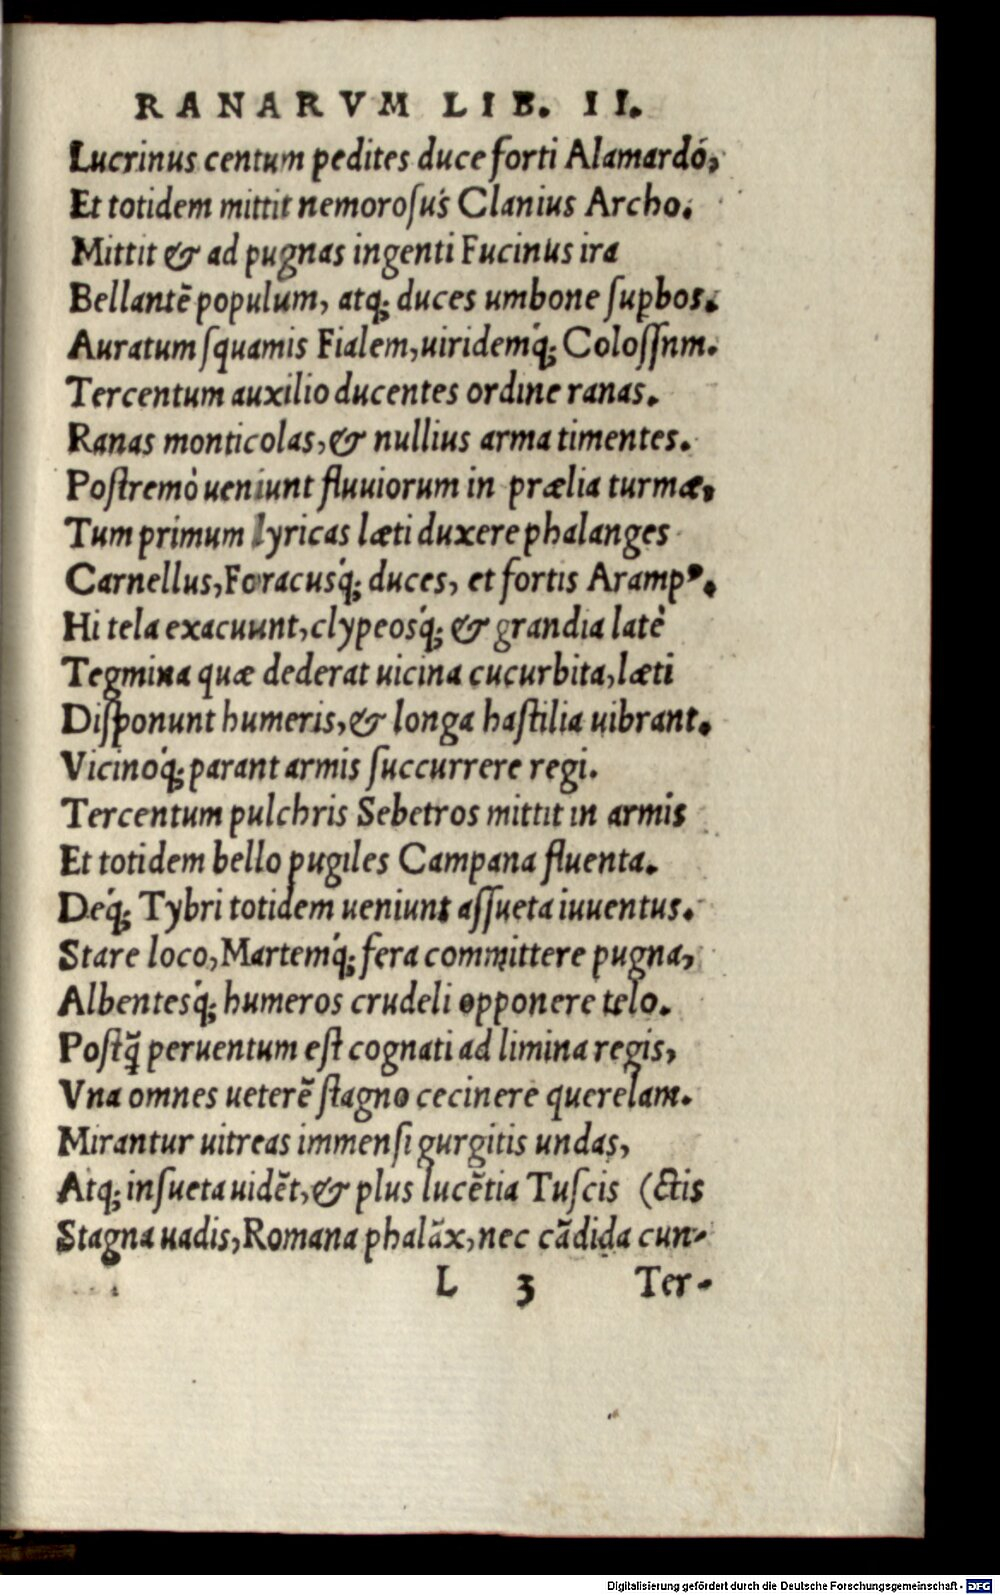 RANARVM LIB. II.
Lucrinus centum pedites duce forti Alamardó,
Et totidem mittit nemoroſus Clanius Archo.
Mittit & ad pugnas ingenti Fucinus ira
Bellantē populum, atq; duces umbone ſupbos.
Auratum ſquamis Fialem, uiridemq́; Coloſſnm.
Tercentum auxilio ducentes ordine ranas.
Ranas monticolas, & nullius arma timentes.
Poſtremò ueniunt fluuiorum in prælia turmæ,
Tum primum lyricas læti duxere phalanges
Carnellus, Foracusq́; duces, et fortis Aramp⁹.
Hi tela exacuunt, clypeosq́; & grandia latè
Tegmina quæ dederat uicina cucurbita, læti
Diſponunt humeris, & longa haſtilia uibrant.
Vicinoq́; parant armis ſuccurrere regi.
Tercentum pulchris Sebetros mittit in armis
Et totidem bello pugiles Campana fluenta.
Deq́; Tybri totidem ueniunt aſſueta iuuentus.
Stare loco, Martemq́; fera committere pugna,
Albentesq́; humeros crudeli opponere telo.
Poſtq̃ peruentum eſt cognati ad limina regis,
Vna omnes ueterē ſtagno cecinere querelam.
Mirantur uitreas immenſi gurgitis undas,
Atq; inſueta uidēt, & plus lucētia Tuſcis (ctis
Stagna uadis, Romana phalāx, nec cādida cun-
L 3 Ter-
Digitalisierung gefördert durch die Deutsche Forschungsgemeinschaft - DFG